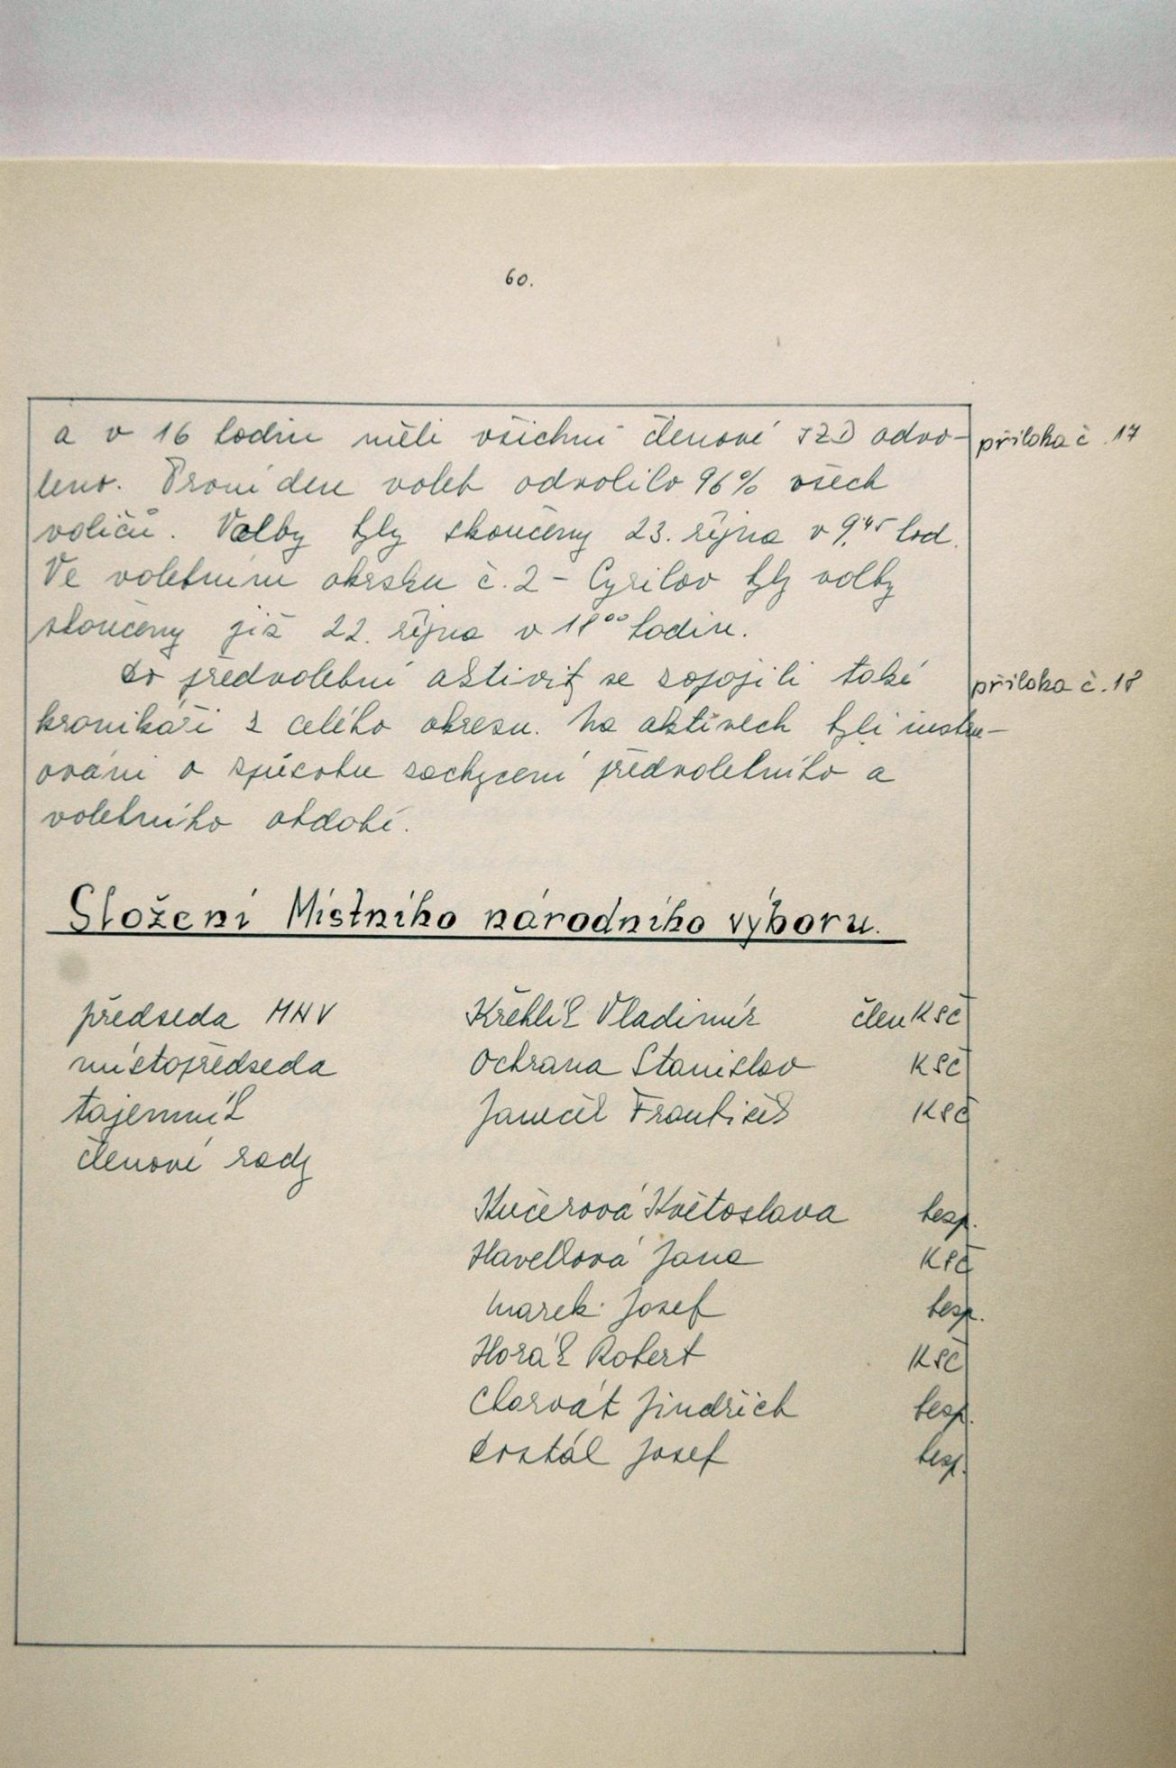 60.
a v 16 hodin měli všichni členové JZD odvo- příloha č. 17
leno. První den voleb odvolilo 96% všech
voličů. Volby byly skončeny 23. října v 9,45 hod.
Ve volebním okrsku č. 2 - Cyrilov byly volby
skončeny již 22. října v 18 00 hodin.
Do předvolební aktivity se zapojili také příloha č. 18
kronikáři z celého okresu. Na aktivech byli instru-
ováni o způsobu zachycení předvolebního a
volebního období.
Složení Místního národního výboru.
předseda MNV Křehlík Vladimír člen KSČ
místopředseda Ochrana Stanislav KSČ
tajemník Janeček František KSČ
členové rady
Kučerová Květoslava bezp.
Havelková Jana KSČ
Marek Josef bezp.
Horák Robert KSČ
Charvát Jindřich bezp.
Dostál Josef bezp.